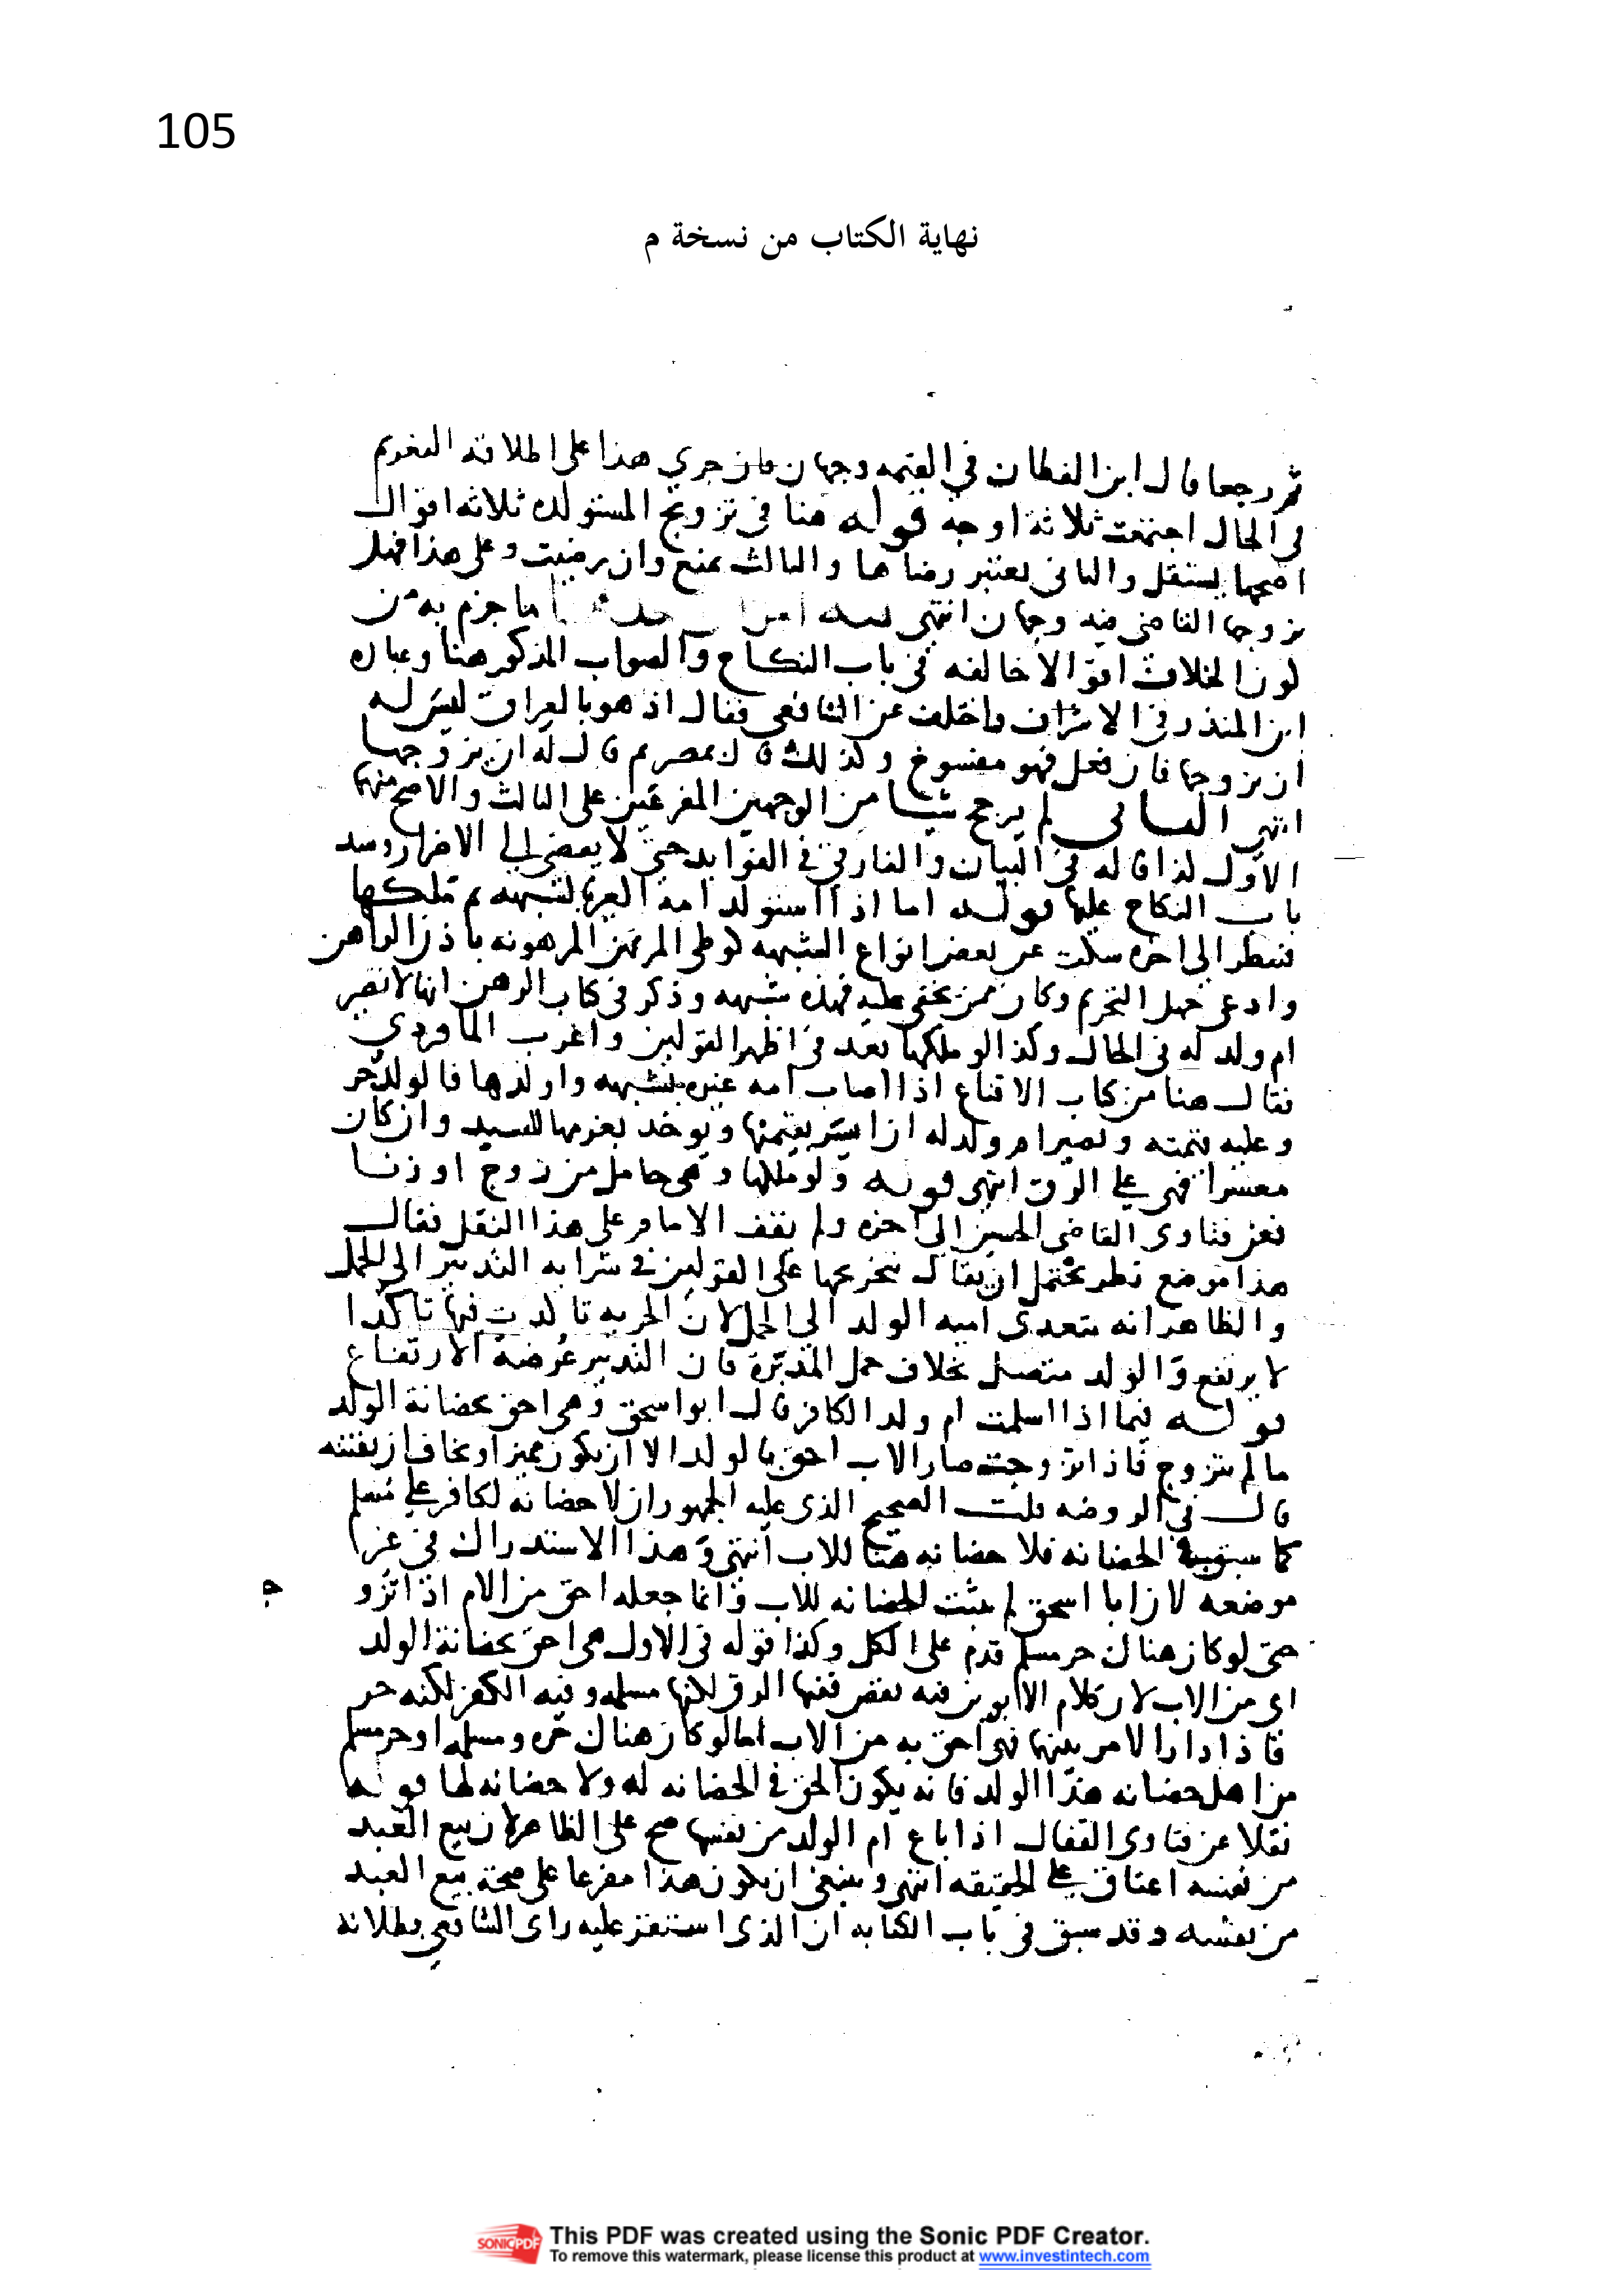 105
نهاية الكتاب من نسخة م
ثم رجعا قال ابن القطان في القيمه وجهان فان جري هذا على اطلاقه التغريم
في الحال اجتمعت ثلاثة اوجه قوله هنا في تزويج المستولده ثلاثه اقوال
اصحها يستقل والثاني يعتبر رضاها والثالث يمنع وان رضيت وعلى هذا فهل
يزوجها القاضي فيه وجهان انتهى فيه ما جزم به من
كون الخلاف اقوالا خالفه في باب النكاح والصواب المذكور هنا وعباره
ابن المنذر في الاشراف واختلف عن الشافعي فقال اذ هو بالعراق ليس له
ان يزوجها فان فعل فهو مفسوخ وكذلك قال بمصر ثم قال له ان يزوجها
انتهى الثاني لم يرجح شيا من الوجهين المفرعين على الثالث والاصح منهما
الاول كذا قاله في البيان والفارقي في الفوايد حتى لا يفضي الى الاضرار وسد
باب النكاح عليها قوله اما اذا استولد امة الغير بشبهه ثم ملكها
فينظر الى اخره سكت عن بعض انواع الشبهه كوطي المرتهن المرهونه باذن الراهن
وادعى جهل التحريم وكان ممن يخفى عليه فهذه شبهه وذكر في كتاب الرهن انها لا تصير
ام ولد له في الحال وكذا لو ملكها بعد في اظهر القولين واغرب الماوردي
فقال هنا من كتاب الاقناع اذا اصاب امه غيره بشبهه واولدها فالولد حر
وعليه قيمته وتصير ام ولد له ان ايسر بقيمتها ويوخذ بغرمها للسيد وان كان
معسرا فهي على الرق انتهى قوله ولو ملكها وهي حامل من زوج او زنا
فعن فتاوى القاضي الحسين الى اخره ولم يقف الامام على هذا النقل فقال
هذا موضع نظر يحتمل ان يقال تخريجها على القولين في سرايه التدبير الى الحمل
والظاهر انه تتعدى اميه الولد الى الحمل لان الحريه تاكدت فيها تاكدا
لا يرتفع والولد متصل بخلاف حمل المدبرة فان التدبير عرضة الارتفاع
قوله فيما اذا اسلمت ام ولد الكافر قال ابو اسحق وهي احق بحضانة الولد
ما لم تتزوج فاذا تزوجت صار الاب احق بالولد الا ان يكون مميزا ويخاف ان يفتنه
قال في الروضه قلت الصحيح الذي عليه الجمهور ان لا حضانه لكافر على مسلم
كما سبق في الحضانه فلا حضانه هنا للاب انتهى وهذا الاستدراك في غير
موضعه لان ابا اسحق لم يثبت الحضانه للاب وانما جعله احق من الام اذا تزو
جـ
حتى لو كان هناك حر مسلم قدم على الكل وكذا قوله في الاول هي احق بحضانة الولد
اي من الاب لان كلام الابوين فيه نقص ففيها الرق لكنها مسلمه وفيه الكفر لكنه حر
فاذا دار الامر بينهما فهي احق به من الاب اما لو كان هناك حره ومسلمه او حر مسلم
من اهل حضانه هذا الولد فانه يكون الحق في الحضانه له ولا حضانه لها قوله
نقلا عن فتاوى القفال اذا باع ام الولد من نفسها صح على الظاهر لان بيع العبد
من نفسه اعتاق على الحقيقه انتهى وينبغي ان يكون هذا مفرعا على صحة بيع العبد
من نفسه وقد سبق في باب الكتابه ان الذي استقر عليه راى الشافعي بطلانه
SONIC PDF
This PDF was created using the Sonic PDF Creator.
To remove this watermark, please license this product at www.investintech.com